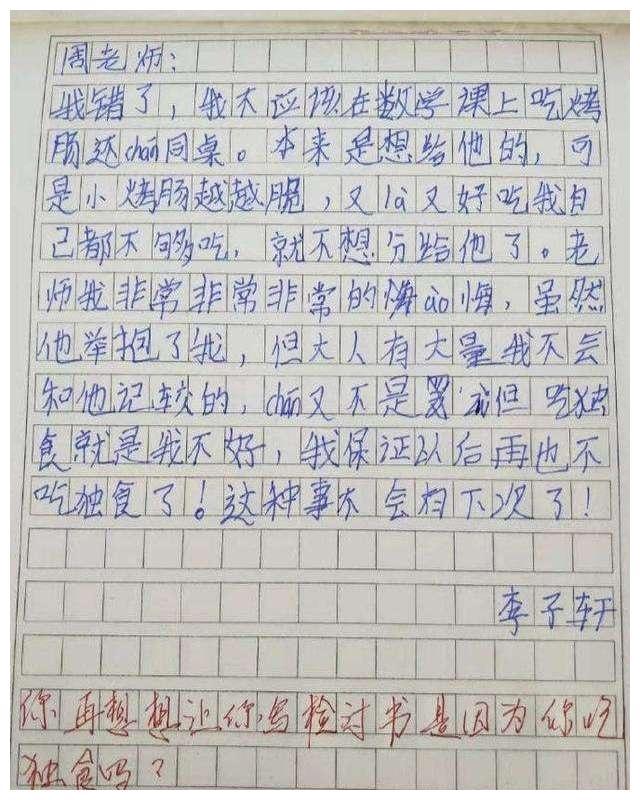 周老师:
我错了，我不应该在数学课上吃烤
肠还chán同桌。本来是想给他的，可
是小烤肠越越脆，又là又好吃我自
己都不够吃，就不想分给他了。老
师我非常非常非常的悔ào悔，虽然
他举抱了我，但大人有大量我不会
和他记较的，chán又不是罢但吃独
食就是我不好，我保证以后再也不
吃独食了！这种事不会有下次了！
李子轩
你再想想让你写检讨书是因为你吃
独食吗？